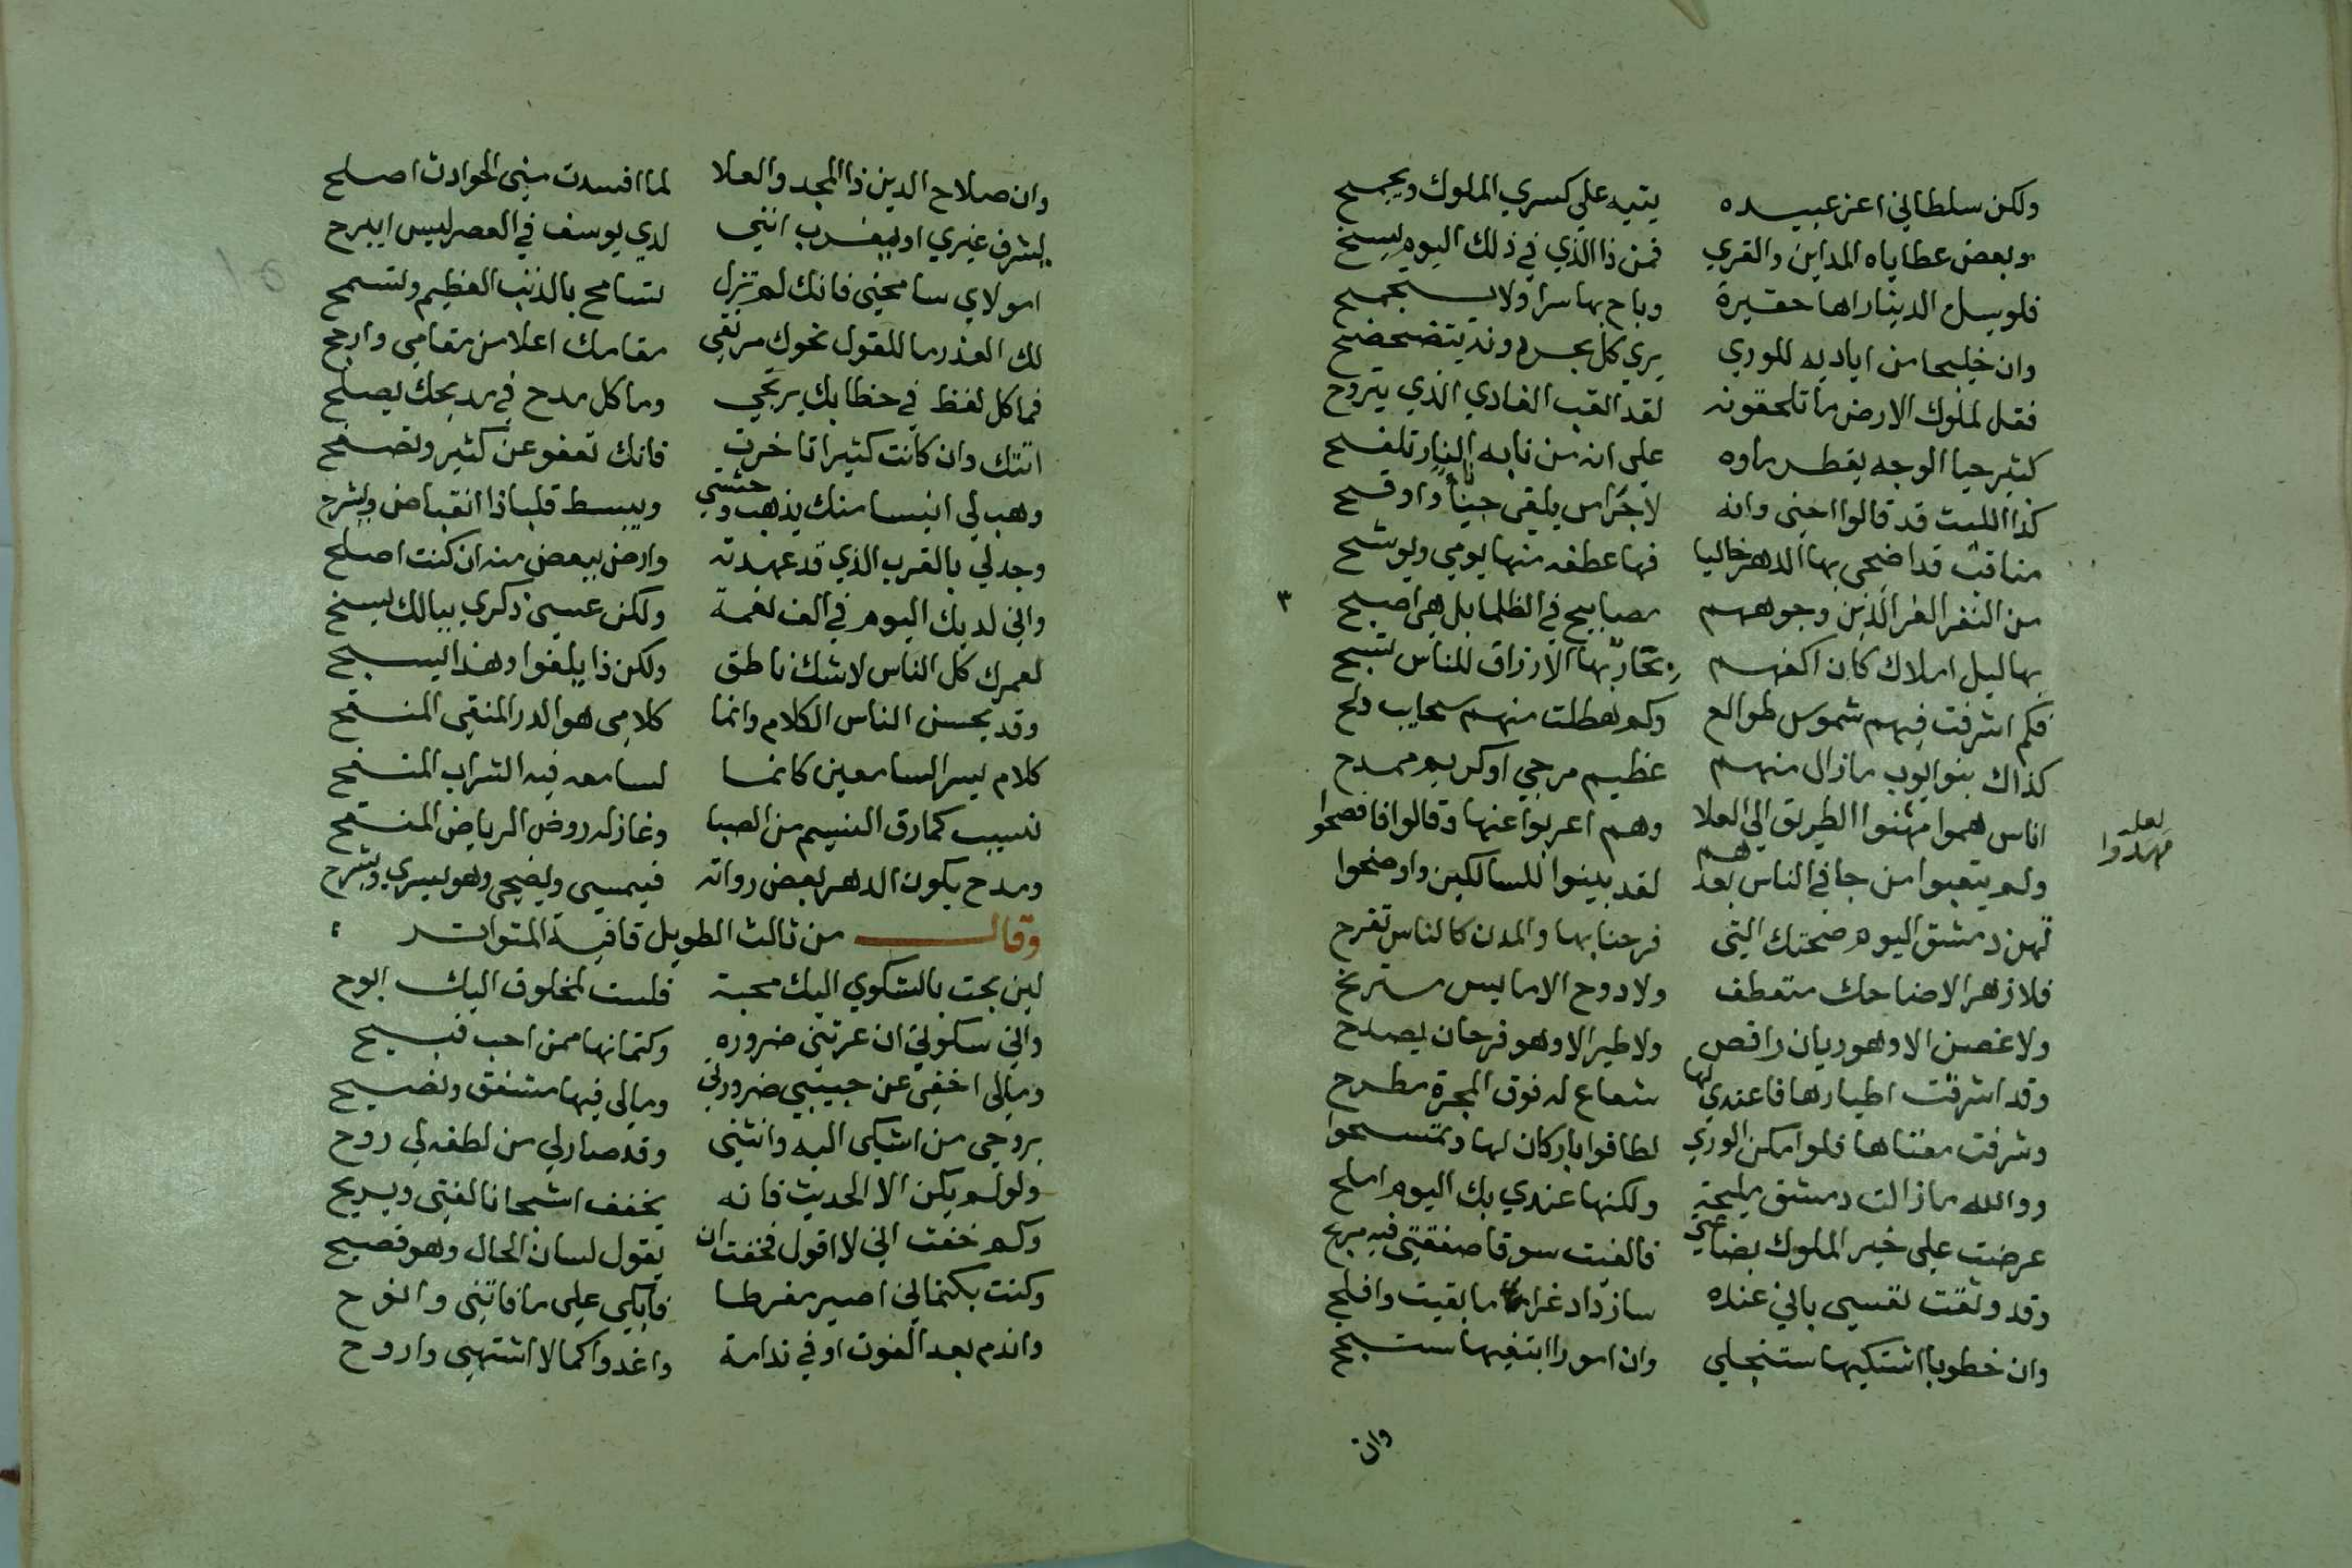 ولكن سلطاني اعز عبيده يتيه علي كسري الملوك ويجمح
وبعض عطاياه المداين والقري فمن ذا الذي في ذلك اليوم يسبح
فلو يسل الدينا راها حقيرة وباح بها سرا ولا يتجمجح
وان خليجا من اياديه للوري يري كل بحر دونه يتضحضح
فقل لملوك الارض ما تلحقونه لقد اتعب الغادي الذي يتروح
كثير حيا الوجه يقطر ماوه علي انه من نابه النار تلفح
كذا الليث قد قالوا اخي وانه لاجرا من يلقي جبانا واوقح
مناقب قد اضحي بها الدهر حاليا فها عطفه منها يومي ويوشح
من النفر الغر الذين وجوههم مصابيح في الظلما بل هي اصبح
بها ليل املاك كان اكفهم بحار بها الارزاق للناس تسبح
فكم اشرقت فيهم شموس طوالع وكم هطلت منهم سحايب دلح
كذاك بنو ايوب ما زال منهم عظيم مرجي او كريم ممدح
اناس هموا مهثنوا الطريق الي العلا وهم اعربوا عنها وقالوا فافصحوا
لعله مهدوا
ولم يتعبوا من جا في الناس بعدهم لقد بينوا للسالكين واوضحوا
تهن دمشق اليوم صحتك التي فرحنا بها والمدن كالناس تفرح
فلا زهر الا ضاحك متعطف ولا دوح الا مايس مترنح
ولا غصن الا وهو ريان راقص ولا طير الا وهو فرحان يصدح
وقد اشرقت اطيارها فاعندي لها شعاع له فوق المجرة مطرح
وشرفت مغناها فلو امكن الوري لطافوا باركان لها وتمسحوا
ووالله ما زالت دمشق مليحة ولكنها عندي بك اليوم املح
عرضت علي خير الملوك بضاعتي فالفيت سوقا صفقتي فيه تربح
وقد وثقت نفسي باني عنده سازداد عزا ما بقيت وافلح
وان خطوبا اشتكيها ستنجلي وان امورا ابتغيها ستنجح
وان
وان صلاح الدين ذا المجد والعلا لما افسدت مني الحوادث اصلح
يشرق غيري او يغرب انني لدي يوسف في العصر ليس ايبرح
امولاي سامحني فانك لم تزل تسامح بالذنب العظيم وتسمح
لك العذر ما للقول نحوك مرتقي مقامك اعلا من مقامي وارجح
فما كل لفظ في خطابك يرتجي وما كل مدح في مديحك يصلح
اتتك وان كانت كثيرا تاخرت فانك تعفو عن كثير وتصفح
وهب لي انيسا منك يذهب وحشتي ويبسط قلبا ذا انقباض ويشرح
وجد لي بالقرب الذي قد عهدته وارض ببعض منه ان كنت اصلح
واني لديك اليوم في الف نعمة ولكن عسي ذكري ببالك يسنح
لعمرك كل الناس لا شك ناطق ولكن ذا يلغوا وهذا يسبح
وقد يحسن الناس الكلام وانما كلامي هو الدر المنقي المنقح
كلام يسر السامعين كانما لسامعه فيه الشراب المنقح
نسيب كما رق النسيم من الصبا وغازله روض الرياض المنقح
ومدح يكون الدهر بعض رواته فيمسي ويضحي وهو يسري ويسرح
وقال من ثالث الطويل قافية المتواتر
لين بحت بالشكوي اليك محبة فلست لمخلوق اليك ابوح
واني سكوتي ان عرتني ضروره وكتمانها ممن احب قبيح
ومالي اخفي عن حبيبي ضرورتي ومالي فيها مشفق ونصيح
بروحي من اشكي اليه وانثني وقد صار لي من لطفه لي روح
ولو لم يكن الا الحديث فانه يخفف اشجانا لفتي ويريح
وكم خفت اني لا اقول فخفت ان يقول لسان الحال وهو فصيح
وكنت بكتماني اصير مفرطا فابكي علي ما فاتني وانوح
واندم بعد الفوت اوفي ندامة واغدوا كما لا اشتهي واروح